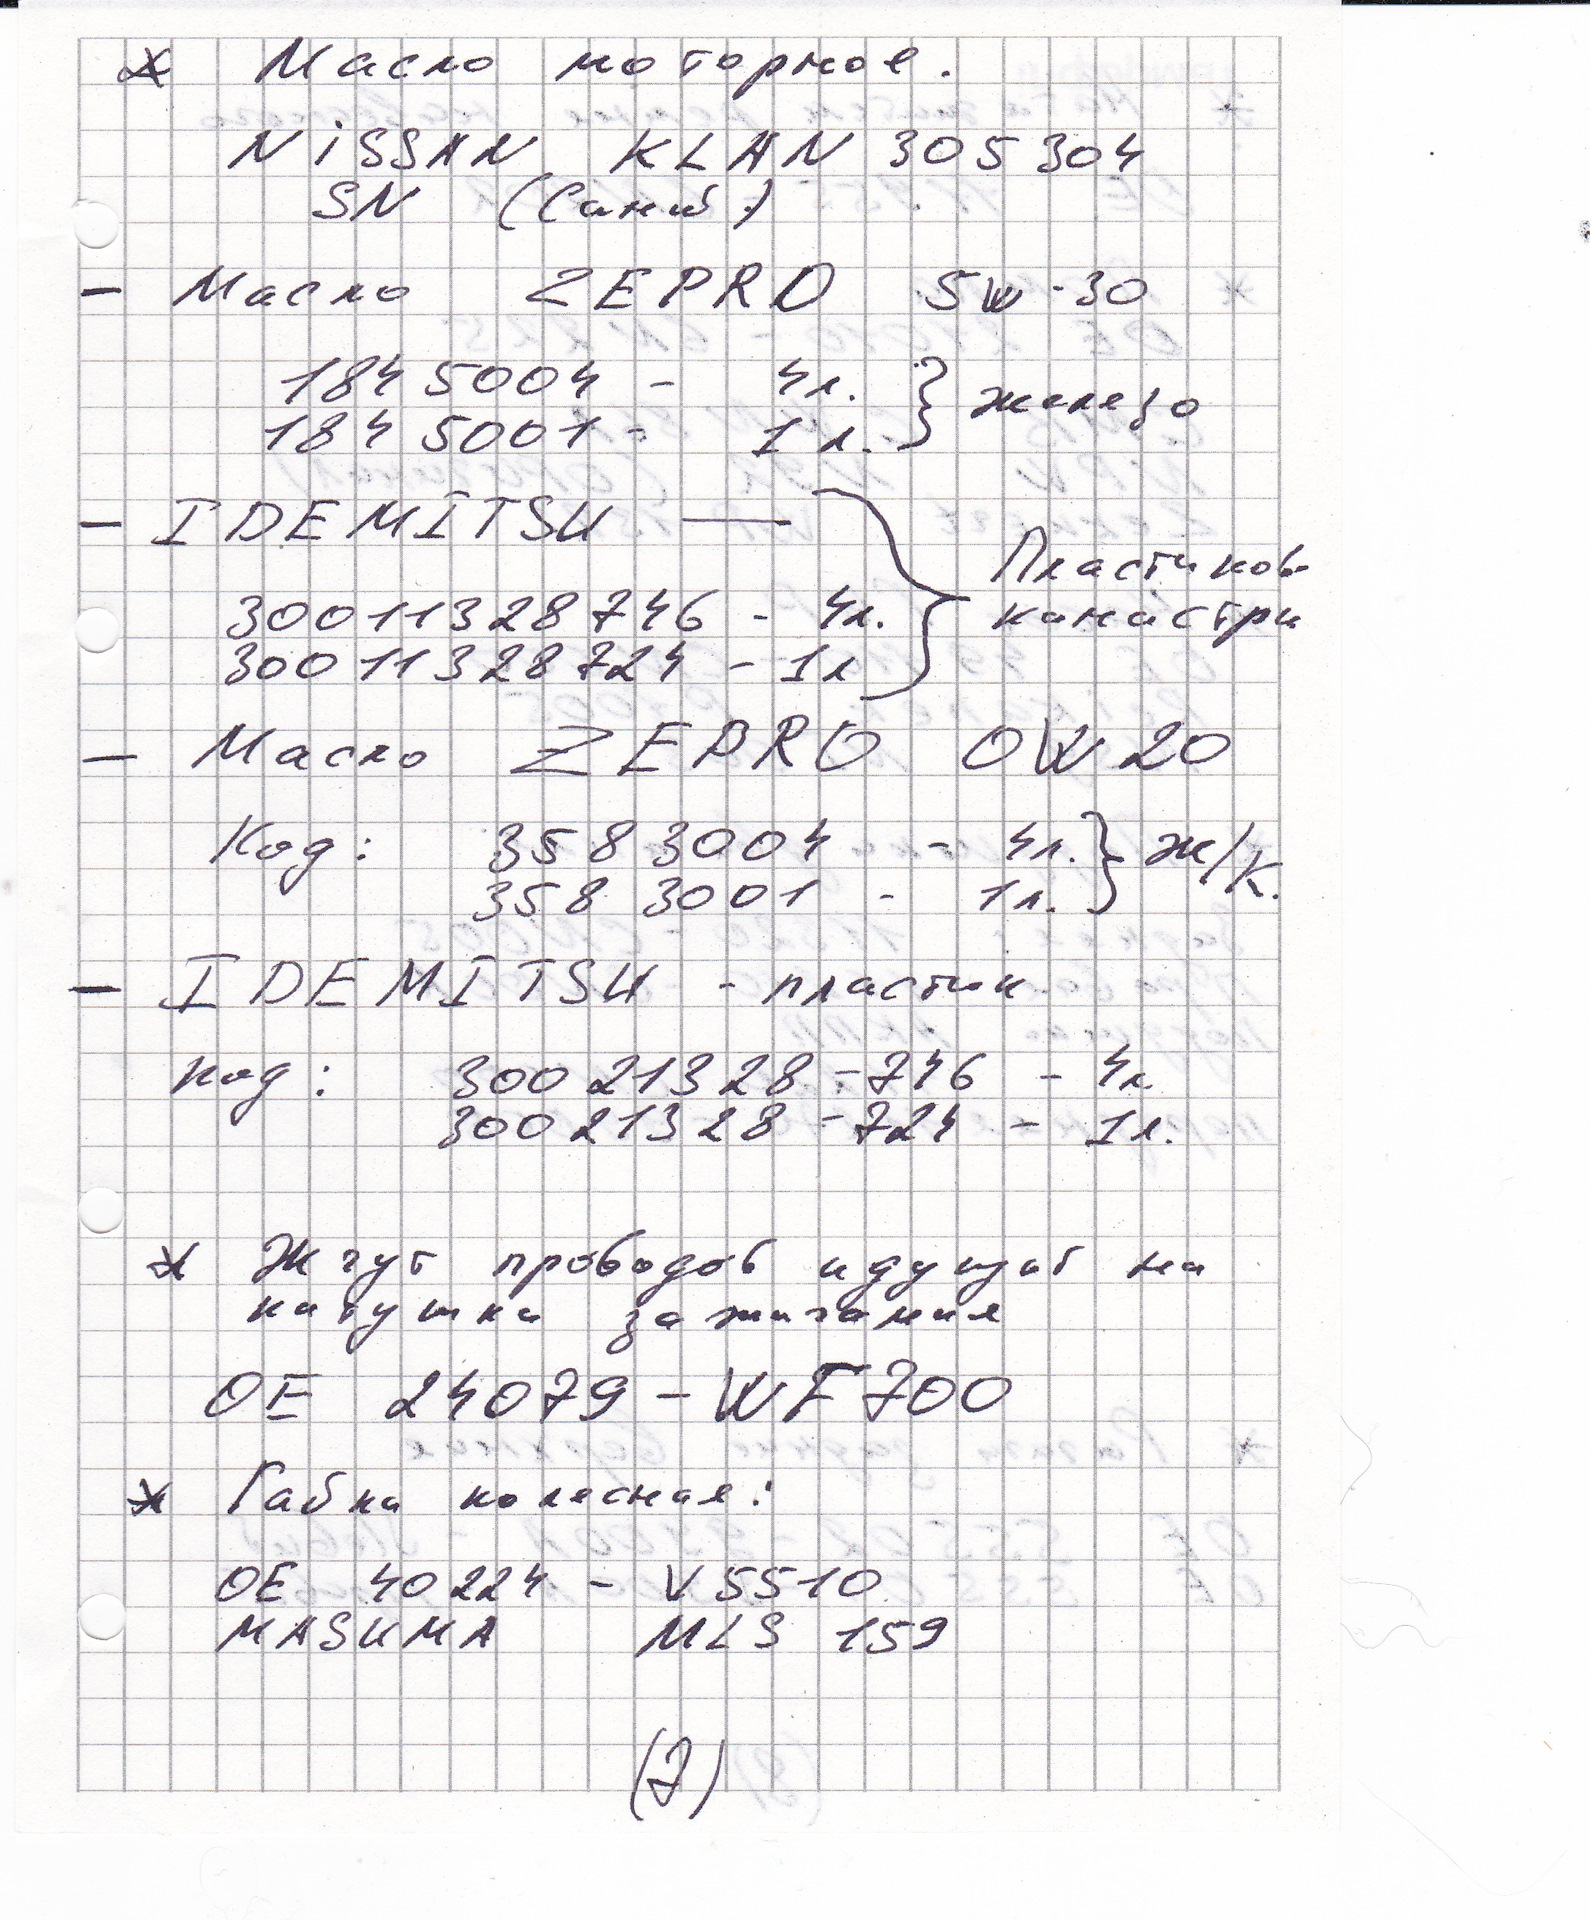 * Масло моторное.
NISSAN KLAN 305304
SN (Синий.)
- Масло ZEPRO 5W-30
1845004 - 4л. } железо
1845001 - 1л.
- IDEMITSU —
Пластиков
30011328746 - 4л. } канистри
30011328724 - 1л
- Масло ZEPRO 0W20
Код: 3583004 - 4л. } ж/к.
3583001 - 1л.
- IDEMITSU - пластик
код: 30021328-746 - 4л.
30021328-724 - 1л.
* Жгут проводов идущий на
катушки зажигания
OE 24079-WF700
* Гайка колесная:
OE 40224 - V5510
MASUMA MLS 159
(7)